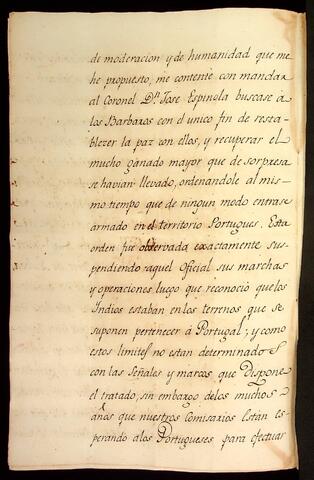 de moderacion y de humanidad que me
he propuesto, me contente con mandar
al Coronel Dn. Jose Espinola buscase à
los Barbaros con el unico fin de resta-
blezer la paz con ellos, y recuperar el
mucho ganado mayor que de sorpresa
se havian llevado, ordenandole al mis-
mo tiempo que de ningun modo entrase
armado en el territorio Portugues. Esta
orden fue observada exactamente sus-
pendiendo aquel Oficial sus marchas
y operaciones luego que reconoció que los
Indios estaban en los terrenos que se
suponen pertenecer à Portugal; y como
estos limites no estan determinados
con las Señales y marcos que Dispone
el tratado, sin embargo de los muchos
años que nuestros Comisarios Están es-
perando a los Portugueses para efectuar